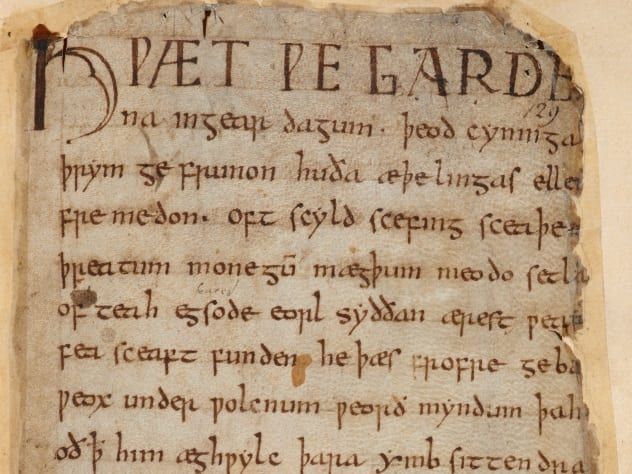 HǷÆT ǷE GARDE
129
na ingear dagum. þeod cyninga
þrym ge frunon huða æþelingas ellen
fremedon. Oft scyld scefing sceaþe
þreatum monegū mægþum meodo setla
of teah egsode eorl syððan ærest ƿear
fea sceaft funden he þæs frofre geba
ƿeox under ƿolcnum ƿeorð myndum þah
oð ꝥ him æghƿylc þara ymb sittendra